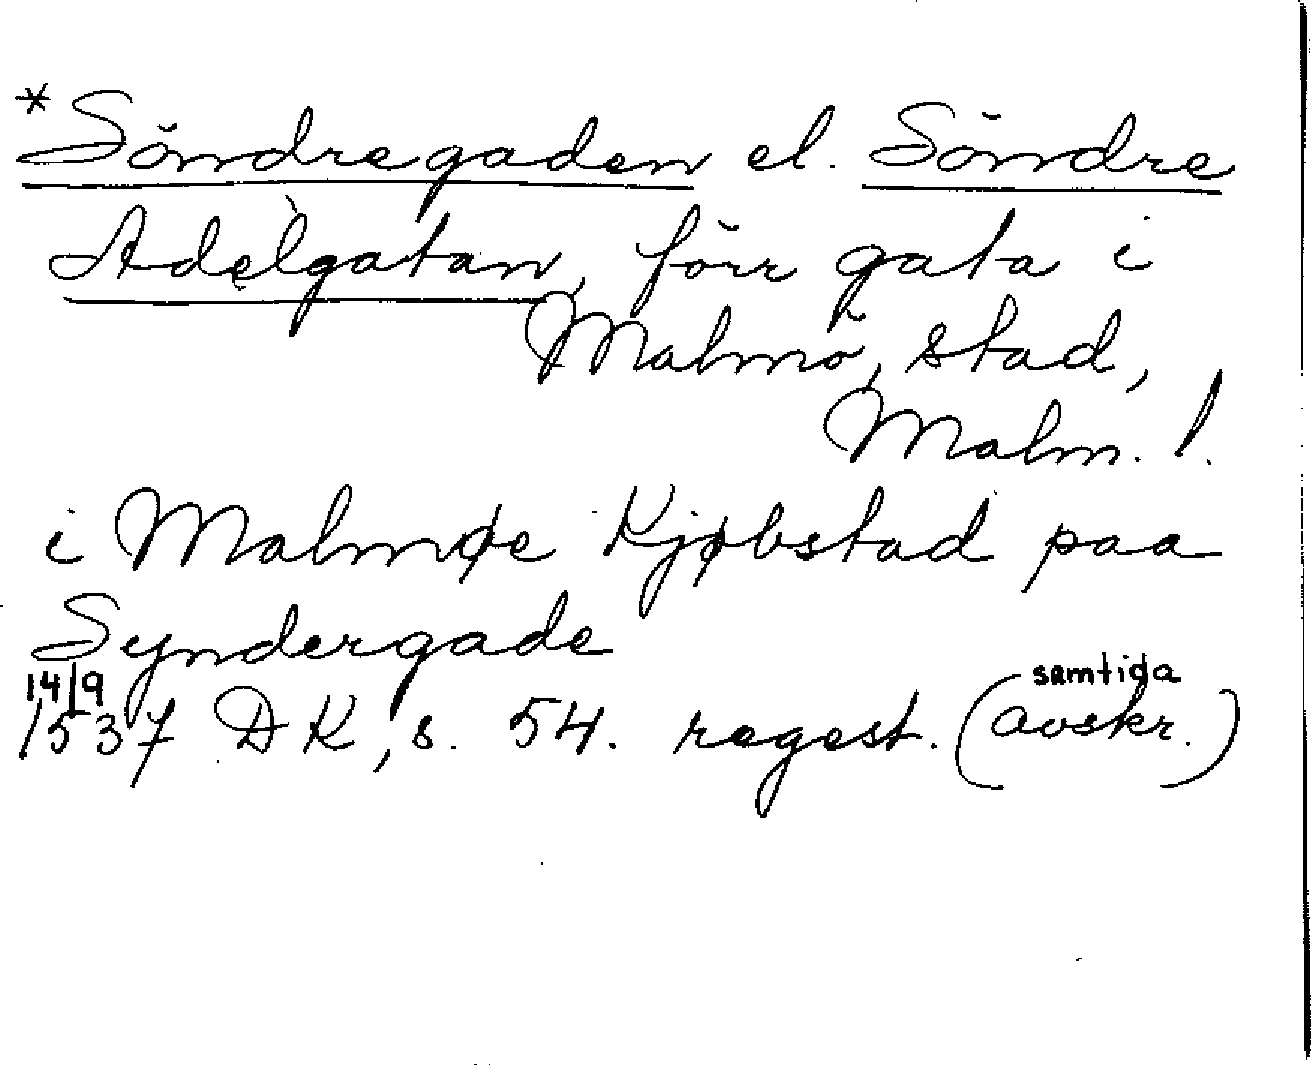 *Söndregaden el. Söndre
Adelgatan, förr gata i
Malmö, stad,
Malm. l.
i Malmøe Kjøbstad paa
Syndergade
14/9 samtida
1537 DK, s. 54. regest. (avskr.)